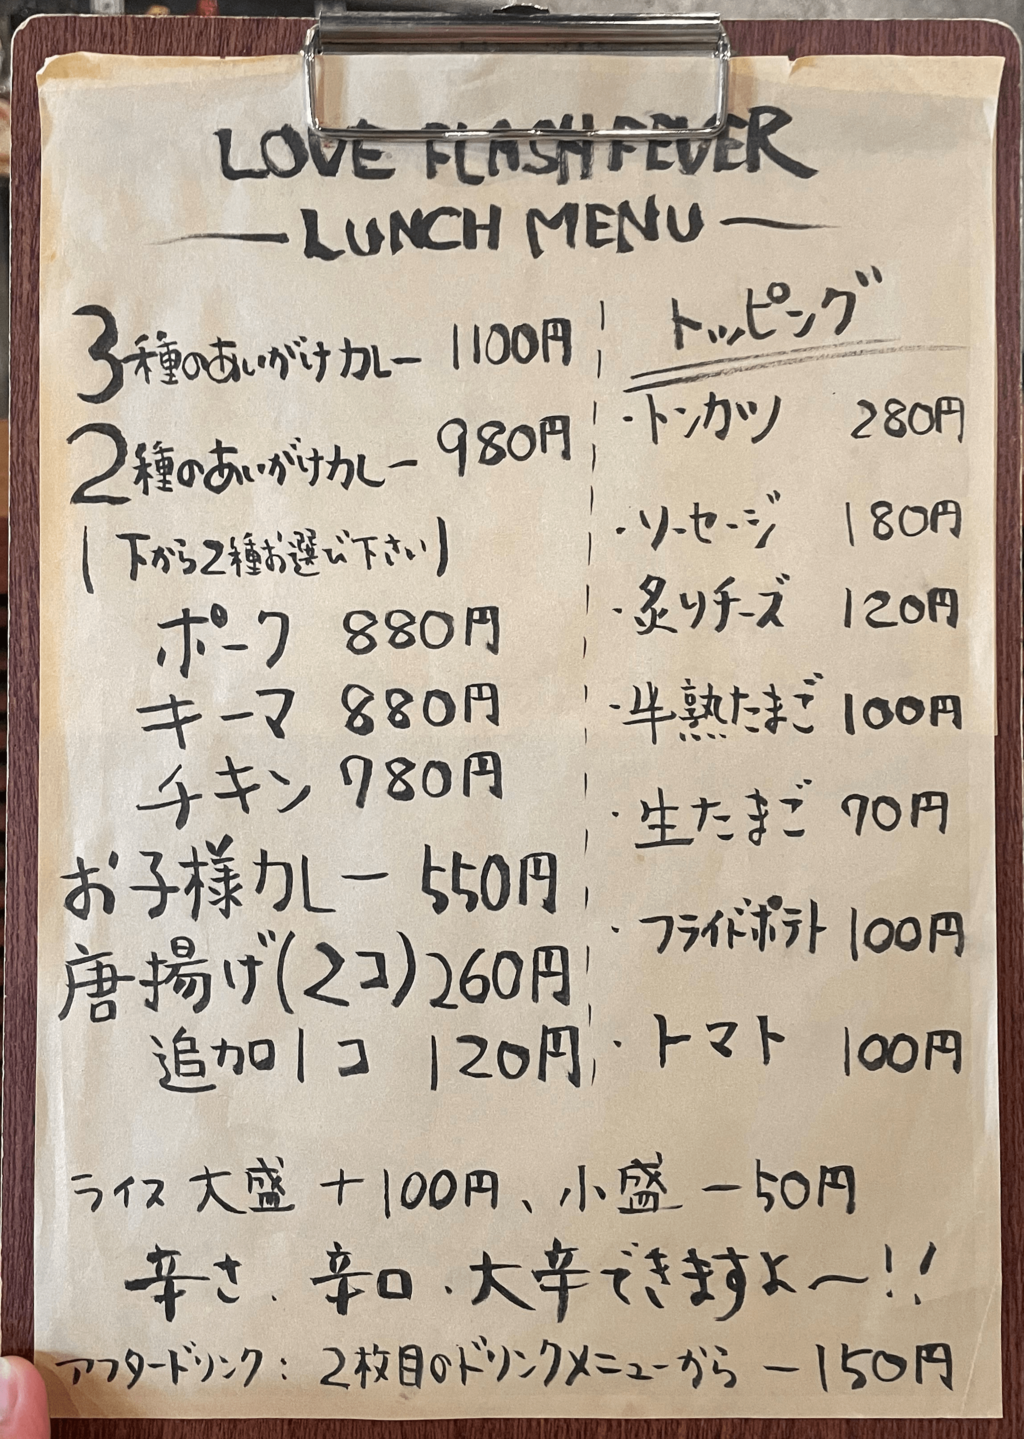 LOVE FLASH FEVER
LUNCH MENU
3種のあいがけカレー 1100円
2種のあいがけカレー 980円
(下から2種お選び下さい)
ポーク 880円
キーマ 880円
チキン 780円
お子様カレー 550円
唐揚げ(2コ) 260円
追加1コ 120円
トッピング
・トンカツ 280円
・ソーセージ 180円
・炙りチーズ 120円
・半熟たまご 100円
・生たまご 70円
・フライドポテト 100円
・トマト 100円
ライス 大盛 +100円、小盛 -50円
辛さ、辛口、大辛できますよ〜!!
アフタードリンク: 2枚目のドリンクメニューから -150円